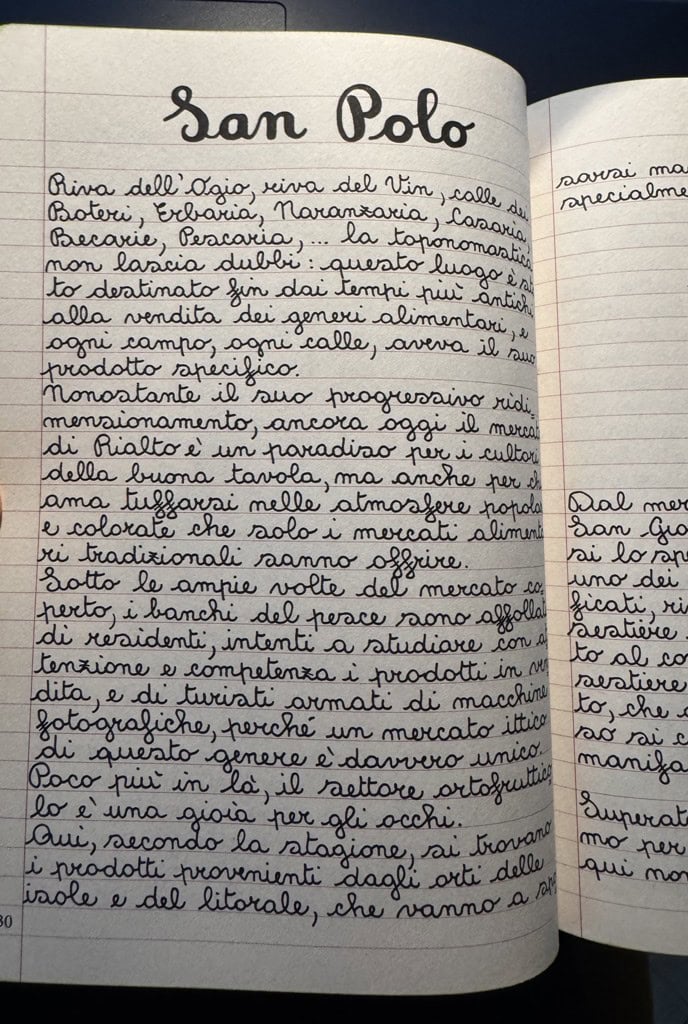 San Polo
Riva dell'Ogio, riva del Vin, calle dei
Boteri, Erbaria, Naranzaria, Casaria,
Becarie, Pescaria, ... la toponomastica
non lascia dubbi : questo luogo è sta
to destinato fin dai tempi più antichi
alla vendita dei generi alimentari, e
ogni campo, ogni calle, aveva il suo
prodotto specifico.
Nonostante il suo progressivo ridi=
mensionamento, ancora oggi il mercato
di Rialto è un paradiso per i cultori
della buona tavola, ma anche per chi
ama tuffarsi nelle atmosfere popolari
e colorate che solo i mercati alimenta
ri tradizionali sanno offrire.
Sotto le ampie volte del mercato co=
perto, i banchi del pesce sono affollati
di residenti, intenti a studiare con at
tenzione e competenza i prodotti in ven
dita, e di turisti armati di macchine
fotografiche, perché un mercato ittico
di questo genere è davvero unico.
Poco più in là, il settore ortofruttico
lo è una gioia per gli occhi.
Qui, secondo la stagione, si trovano
i prodotti provenienti dagli orti delle
isole e del litorale, che vanno a spo
30
sarsi ma
specialme
Dal mer
San Gia
si lo spe
uno dei
ficati, ri
sestiere
to al co
sestiere
to, che
so si c
manifa
Superat
mo per
qui non